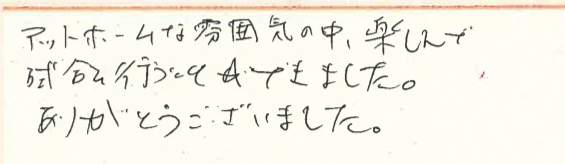 アットホームな雰囲気の中、楽しんで
試合を行うことができました。
ありがとうございました。